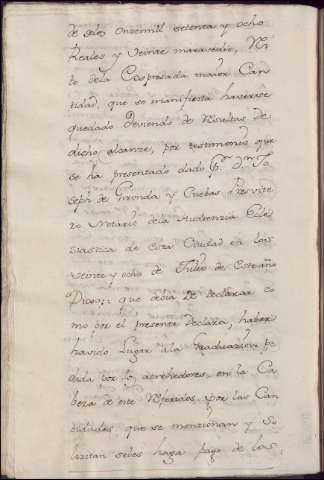 de solos Oncemill setenta y ocho
Reales y Veinte maravedis, Res
to dela Expresada maior Can
tidad, que se manifiesta haverse
quedado deviendo de Resultas de
dicho alcanze, por testimonio que
se ha presentado dado Pr. Dn. Jo
seph de Gironda y Cuebas Presvite
ro Notario dela Audiencia Ecle
siastica de esta Ciudad en los
veinte y ocho de Julio de este año
Dixo: que devia de declarar co
mo por el presente declara, haber
havido Lugar ála Graduazion pe
dida por los acrehedores, en la Ca
beza de este Referidos por las Can
tidades que se menzionan y So
lizitan seles haga pago de las